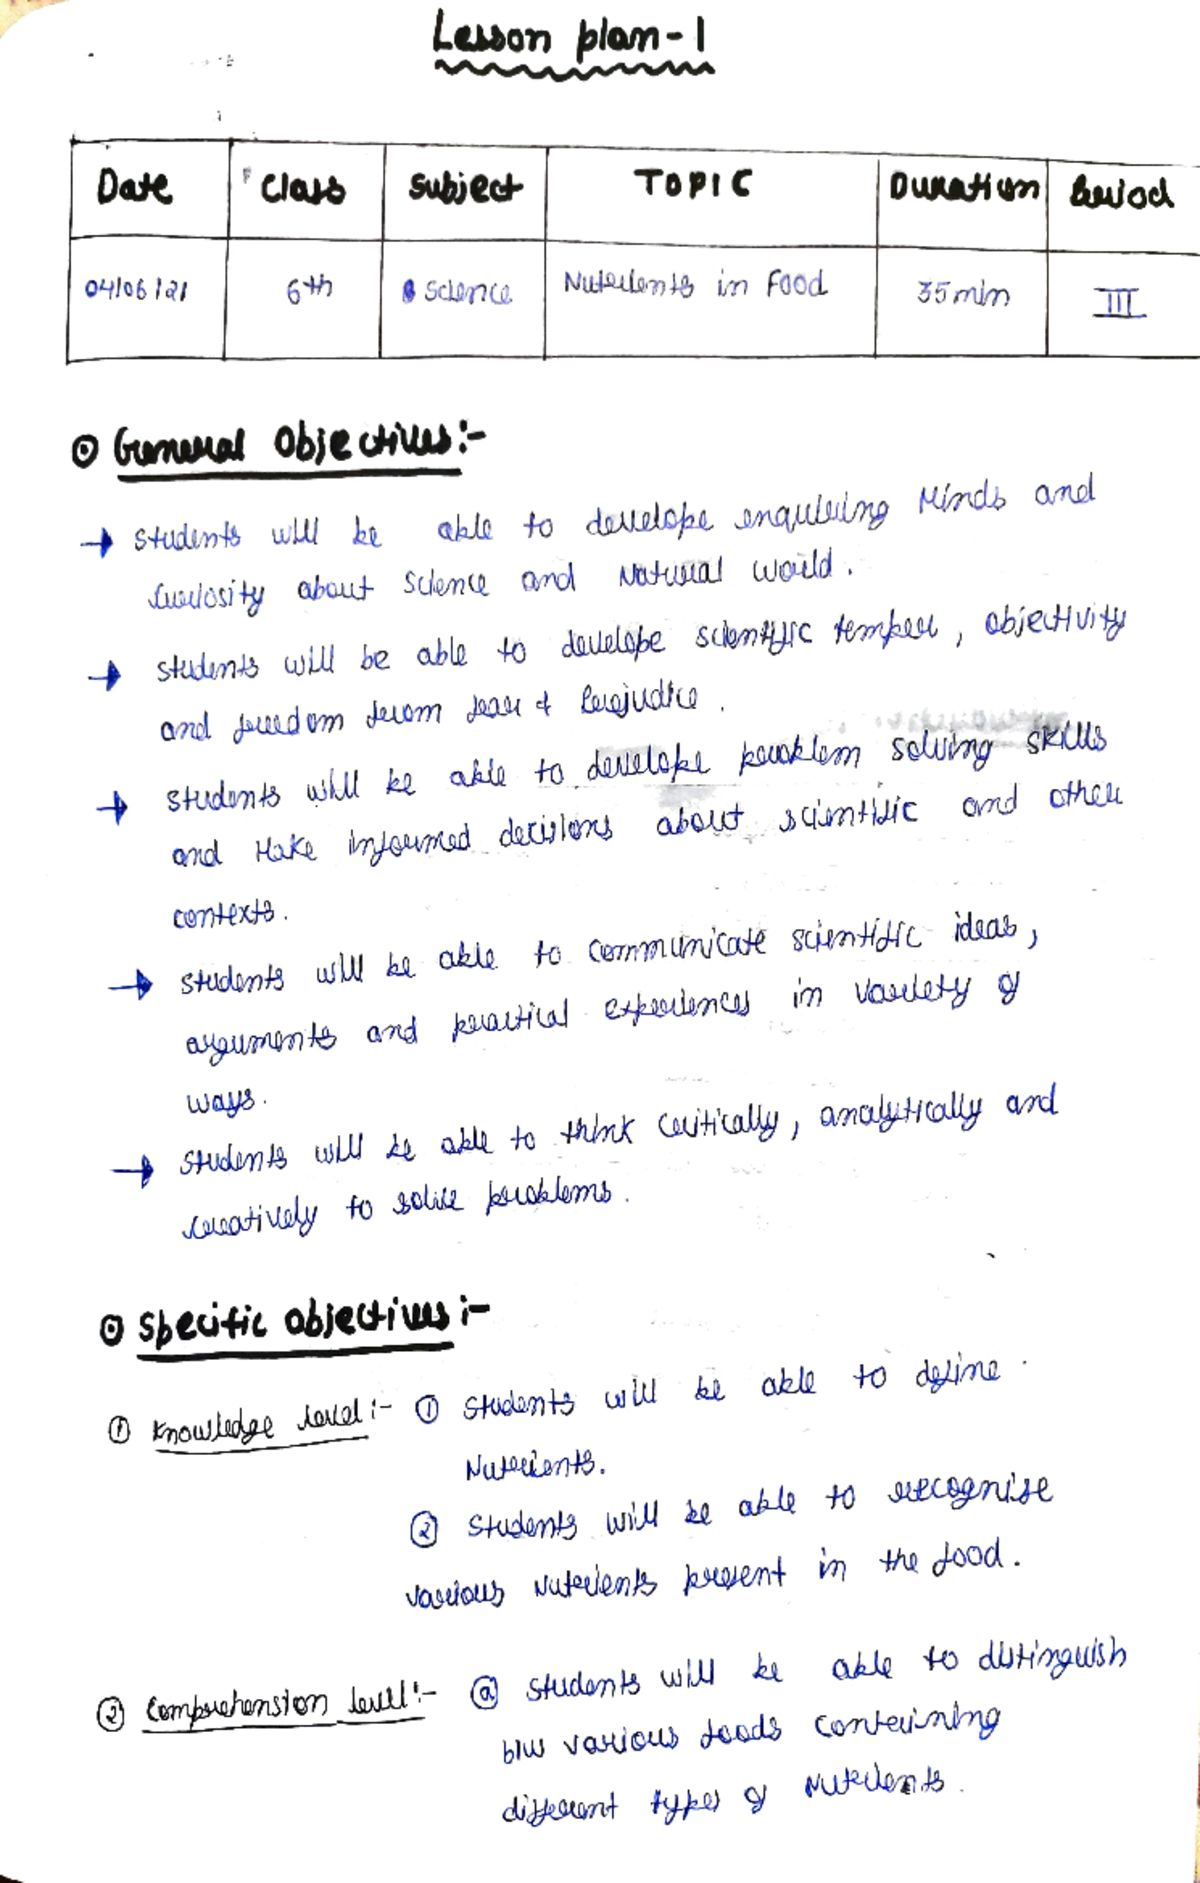 Lesson plan-1
Date Class Subject TOPIC Duration Period
04/06/21 6th Science Nutrients in Food 35min III
General Objectives:-
→ Students will be able to develope enquiring Minds and
curiosity about Science and Natural world.
→ students will be able to develope scientific temper, objectivity
and freedom from fear & Prejudice.
→ students will be able to develope problem solving skills
and Make informed decisions about scientific and other
contexts.
→ students will be able to communicate scientific ideas,
arguments and practical experiences in variety of
ways.
→ students will be able to think critically, analytically and
creatively to solve problems.
Specific objectives:-
① Knowledge level:- ① Students will be able to define
Nutrients.
② Students will be able to recognise
various Nutrients present in the food.
② Comprehension level:- ⓐ Students will be able to distinguish
b/w various foods containing
different types of Nutrients.